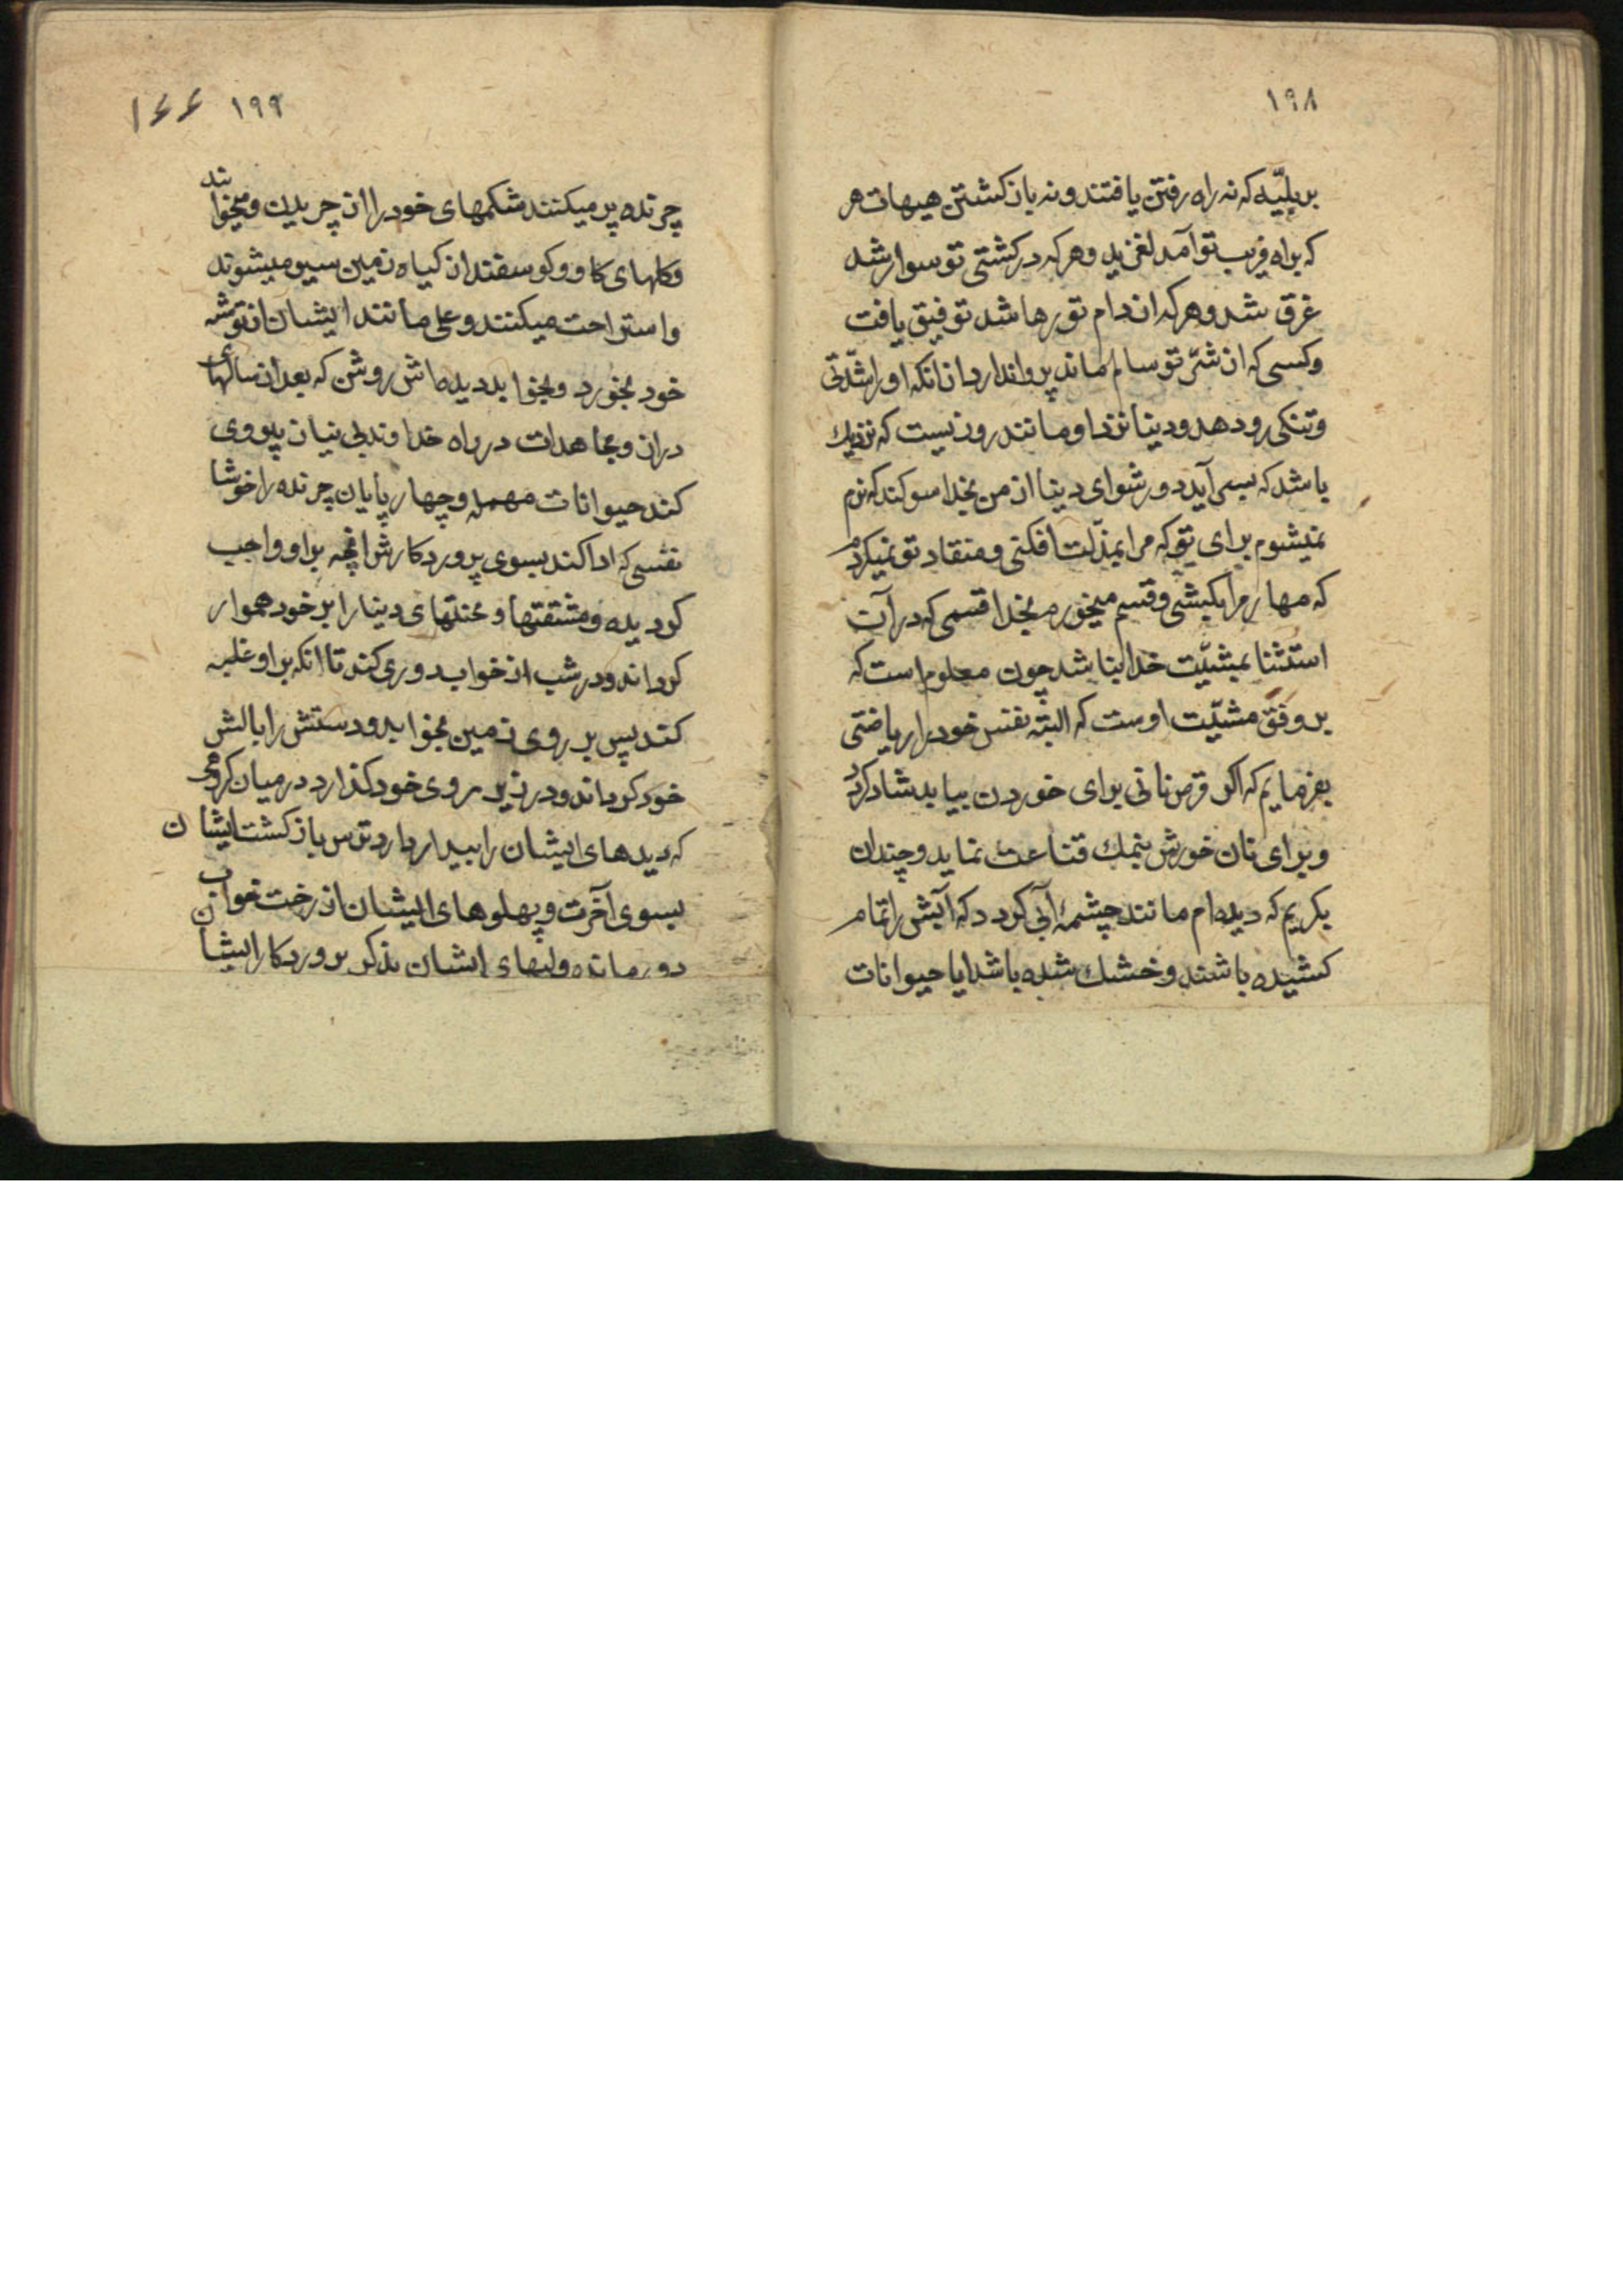 ۱۹۸
بر بلیّه که نه راه رفتن یافتند و نه باز کشتن هیهات هر
که براه فریب تو آمد لغزید و هر که در کشتی تو سوار شد
غرق شد و هر که از دام تو رها شد توفیق یافت
و کسی که از شرّ تو سالم ماند پروا ندارد از انکه او را شدّتی
و تنکی رو دهد و دنیا نزد او مانند روزیست که نزدیك
باشد که بسر آید دور شو ای دنیا از من بخدا سوکند که نرم
نمیشوم برای تو که مرا بمذلّت افکنی و منقاد تو نمیکردم
که مهار مرا بکشی و قسم میخورم بخدا قسمی که در آن
استثنا بمشیّت خدا نباشد چون معلوم است که
بر وفق مشیّت اوست که البتّه نفس خود را ریاضتی
بفرمایم که اکر قرص نانی برای خوردن بیابد شاد کردد
و برای نان خورش بنمك قناعت نماید و چندان
بکریم که دیده ام مانند چشمهٔ آبی کردد که آبش را تمام
کشیده باشند و خشك شده باشد ایا حیوانات
۱۹۹ ۱۴۴
چرنده پر میکنند شکمهای خود را از چریدن و میخوابند
و کلهای کاو و کوسفند از کیاه زمین سیر میشوند
و استراحت میکنند و علی مانند ایشان از توشه
خود بخورد و بخوابد دیده اش روشن که بعد از سالهای
دراز و مجاهدات در راه خداوند بی نیاز پیروی
کند حیوانات مهمله و چهار پایان چرنده را خوشا
نفسی که ادا کند بسوی پروردکارش انچه بر او واجب
کردیده و مشقتها و محنتهای دنیا را بر خود هموار
کرداند و در شب از خواب دوری کند تا انکه بر او غلبه
کند پس بر روی زمین بخوابد و دستش را بالش
خود کرداند و در زیر روی خود کذارد در میان کروهی
که دیدهای ایشان را بیدار دارد ترس باز کشت ایشان
بسوی آخرت و پهلوهای ایشان از رخت خواب
دور مانده و لبهای ایشان بذکر پروردکار ایشان